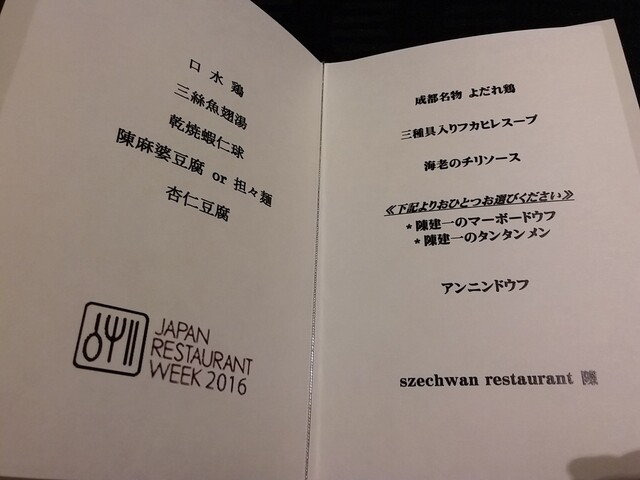 口水鶏
三絲魚翅湯
乾焼蝦仁球
陳麻婆豆腐 or 担々麺
杏仁豆腐
JAPAN
RESTAURANT
WEEK 2016
成都名物 よだれ鶏
三種具入りフカヒレスープ
海老のチリソース
≪下記よりおひとつお選びください≫
* 陳建一のマーボードウフ
* 陳建一のタンタンメン
アンニンドウフ
szechwan restaurant 陳